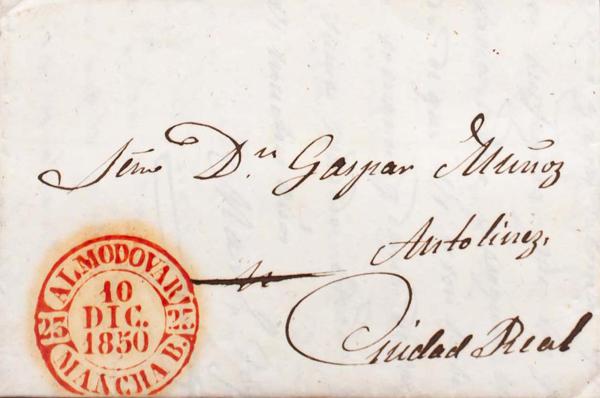 Señor Dn Gaspar Muñoz
Antolinez.
Ciudad Real
ALMODOVAR
10
DIC.
1850
23 23
MANCHA B.